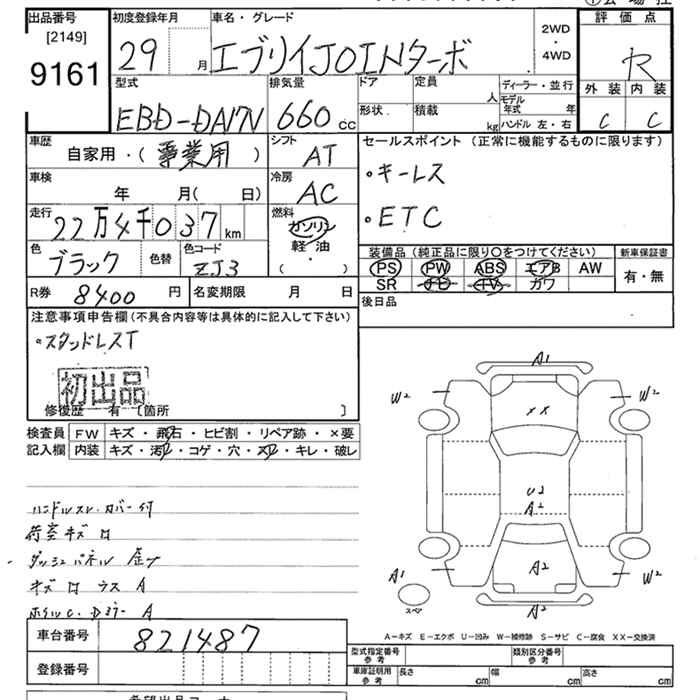 出品番号
[2149]
9161
初度登録年月
29 月
車名・グレード
エブリイJOINターボ
2WD
・
4WD
評価点
R
外装 内装
C C
型式
EBD-DA17V
排気量
660 cc
ドア
定員 人
形状
積載 kg
ディーラー・並行
モデル年式 年
ハンドル 左・右
車歴
自家用・(事業用)
シフト
AT
車検
年 月( 日)
冷房
AC
走行
22万4千037 km
燃料
ガソリン
軽油
・
( )
色
ブラック
色替
色コード
ZJ3
R券 8400 円
名変期限 月 日
セールスポイント (正常に機能するものに限ります)
・キーレス
・ETC
装備品 (純正品に限り〇をつけてください)
PS PW ABS エアB AW
SR ナビ TV カワ
新車保証書
有・無
後日品
注意事項申告欄(不具合内容等は具体的に記入して下さい)
・スタッドレスT
初出品
修復歴 有 [箇所 ]
検査員
記入欄
FW キズ・飛石・ヒビ割・リペア跡・×要
内装 キズ・汚レ・コゲ・穴・スレ・キレ・破レ
荷室キズ
A1
W2
W2
XX
U2
A2
A2
A1
スペア
W2
A2
A-キズ E-エクボ U-凹み W-補修跡 S-サビ C-腐食 XX-交換済
車台番号
821487
登録番号
型式指定番号
参考
類別区分番号
参考
車庫証明用
参考
長さ cm
幅 cm
高さ cm